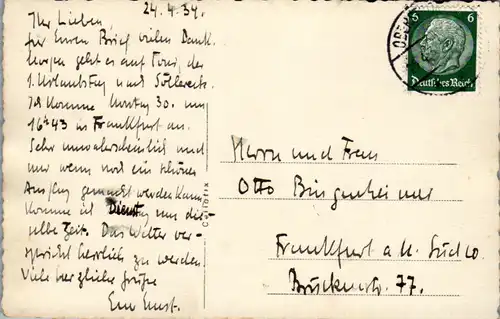 24.4.34.
Ihr Lieben
für Euren Brief vielen Dank.
Morgen geht es auf Tour, der
1. Urlaubstag und Söllereck.
Ich komme Montag 30. um
16 43 in Frankfurt an.
Sehr unwahrscheinlich und
nur wenn noch ein schöner
Ausflug gemacht werden kann
komme ich Dienstag um die-
selbe Zeit. Das Wetter ver-
spricht herrlich zu werden
Viele herzliche Grüße
Euer Ernst.
Cellofix
6
Deutsches Reich
Herrn und Frau
Otto
Frankfurt a. M. Süd 10
Brückenstr. 77.